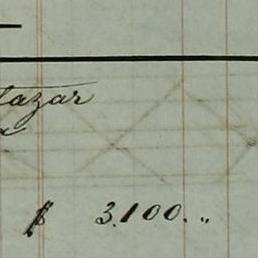 lazar
$ 3.100. „